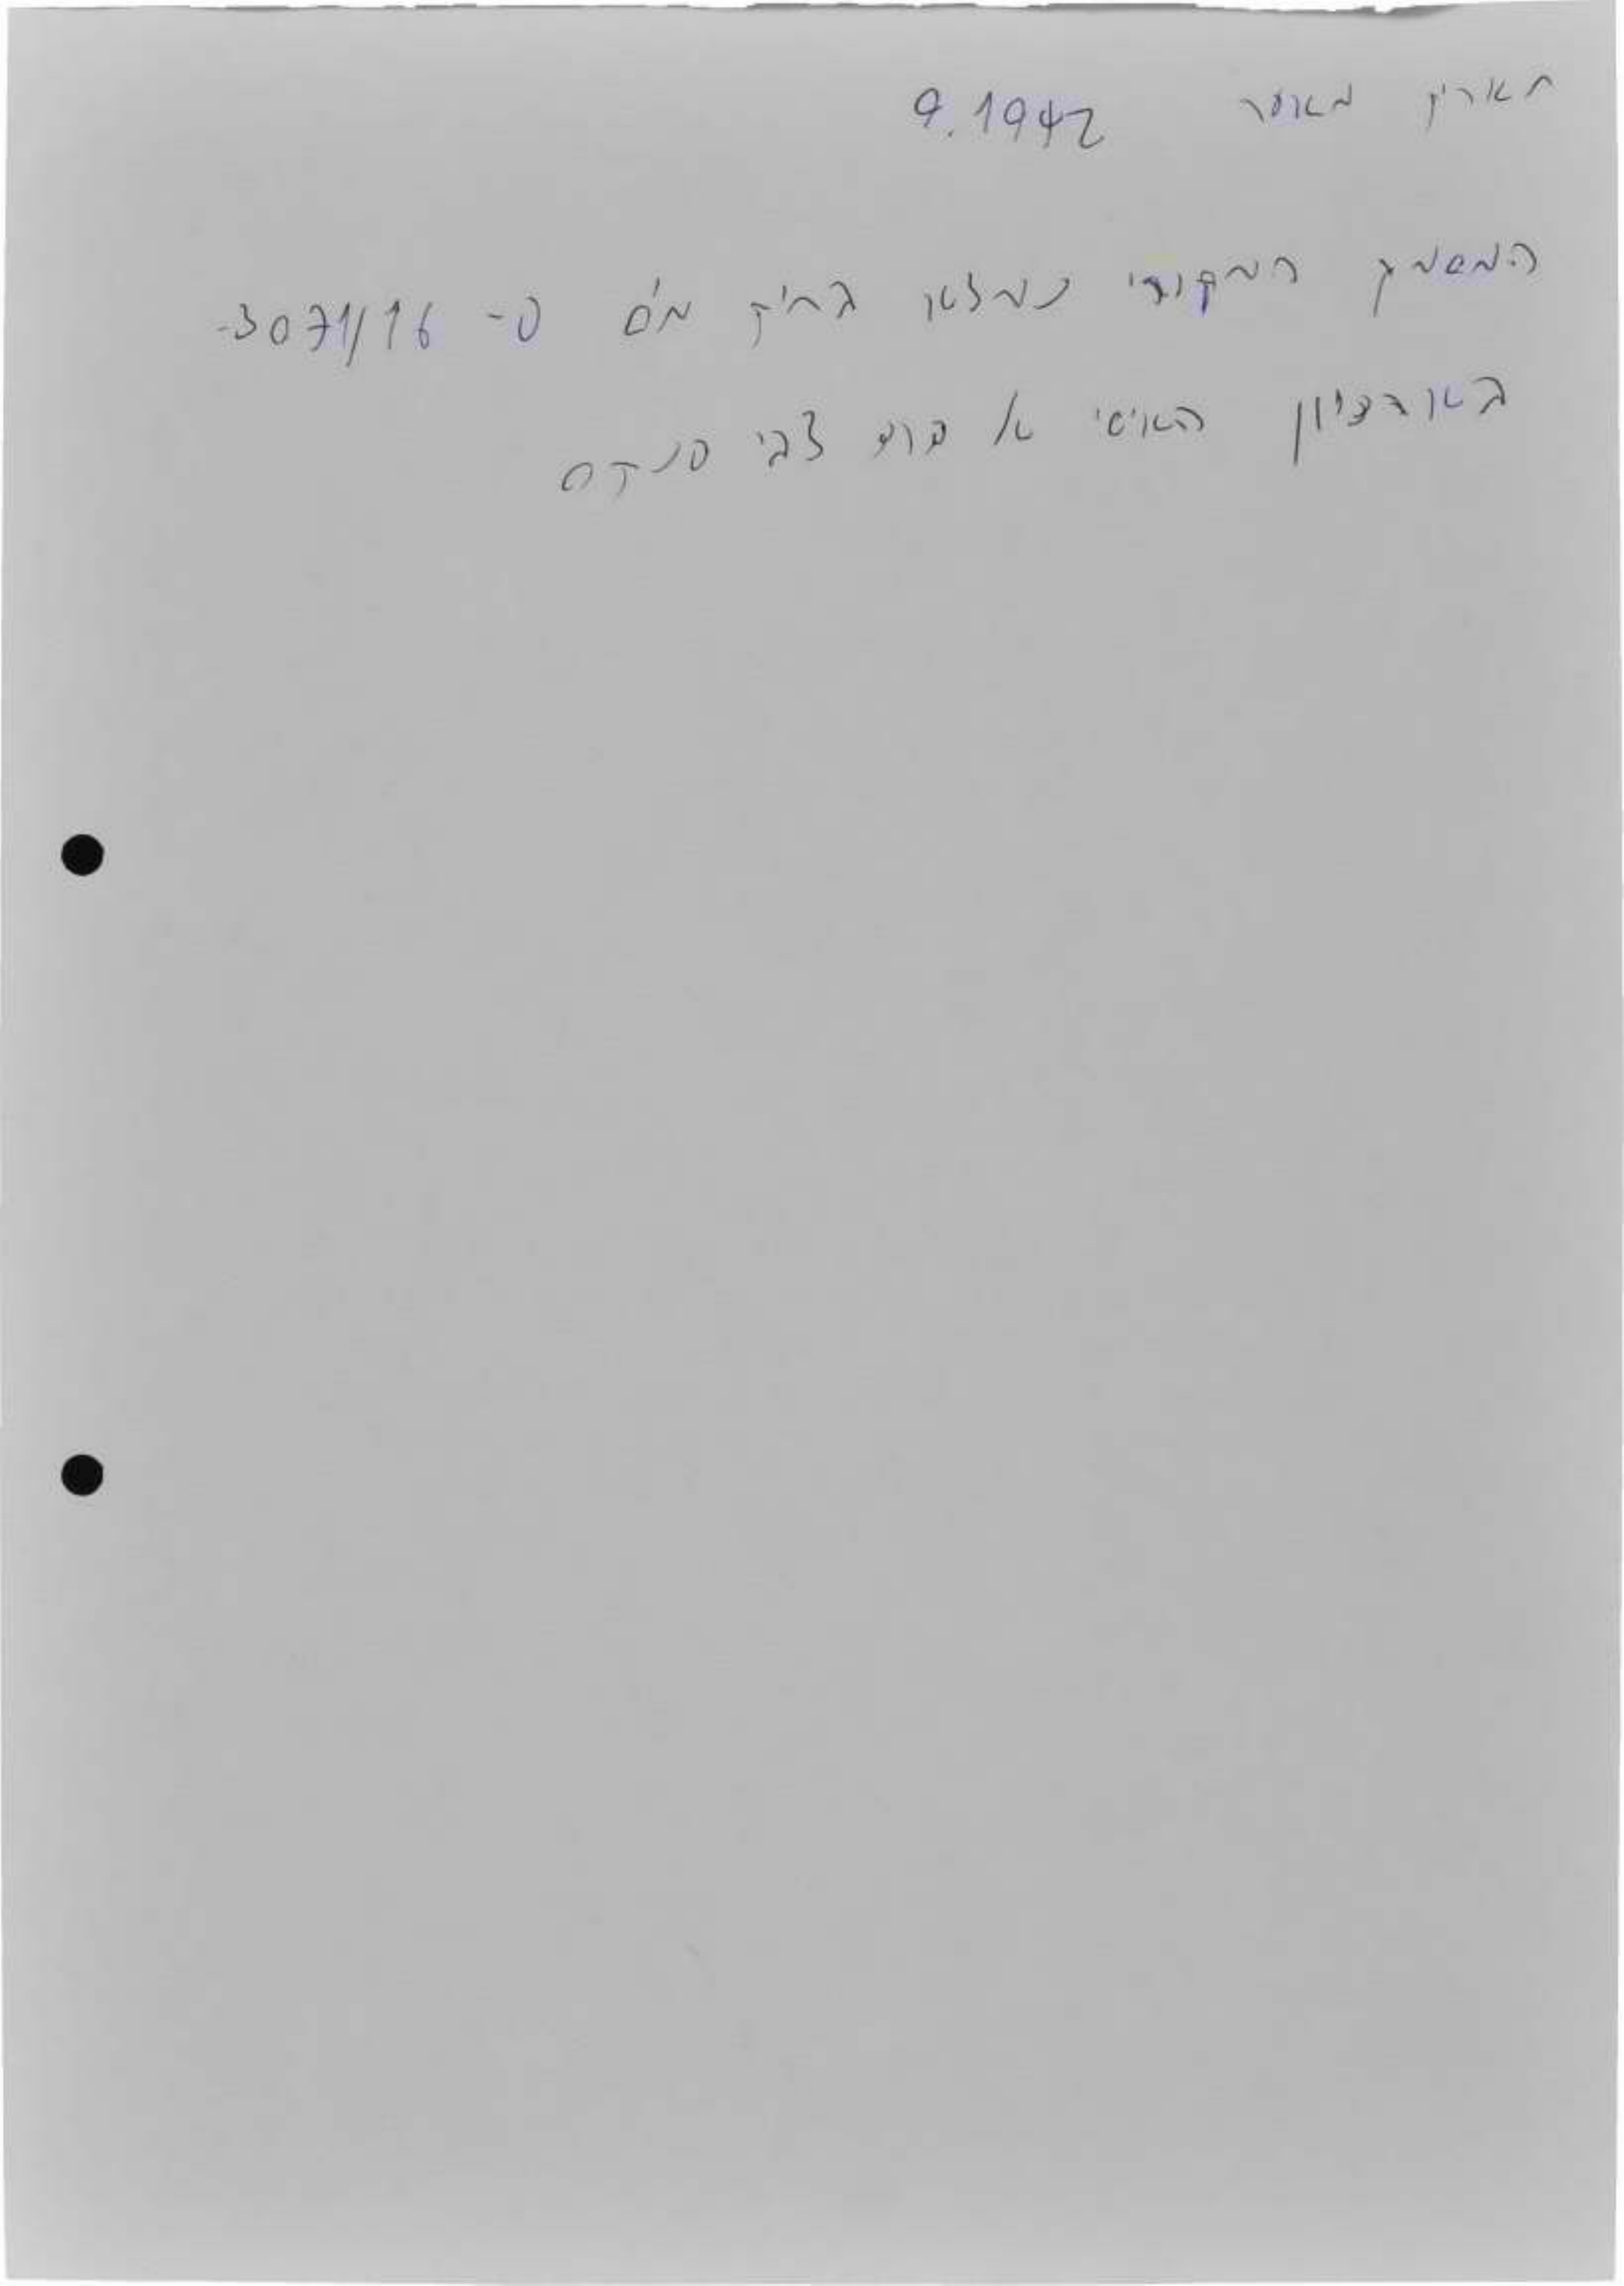 תאריך משוער 9.1942
המסמך המקורי נמצא בתיק מס' פ- 3071/16-
בארכיון האישי של פרופ' צבי